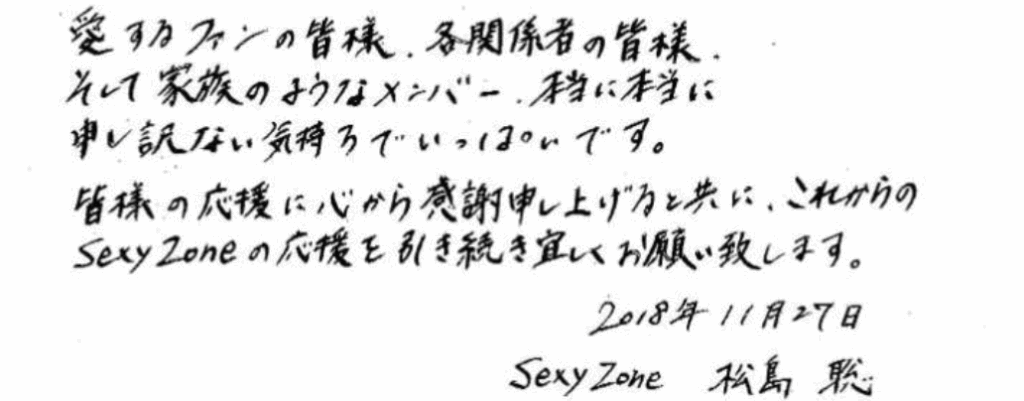 愛するファンの皆様、各関係者の皆様、
そして家族のようなメンバー、本当に本当に
申し訳ない気持ちでいっぱいです。
皆様の応援に心から感謝申し上げると共に、これからの
Sexy Zoneの応援を引き続き宜しくお願い致します。
2018年11月27日
Sexy Zone 松島 聡